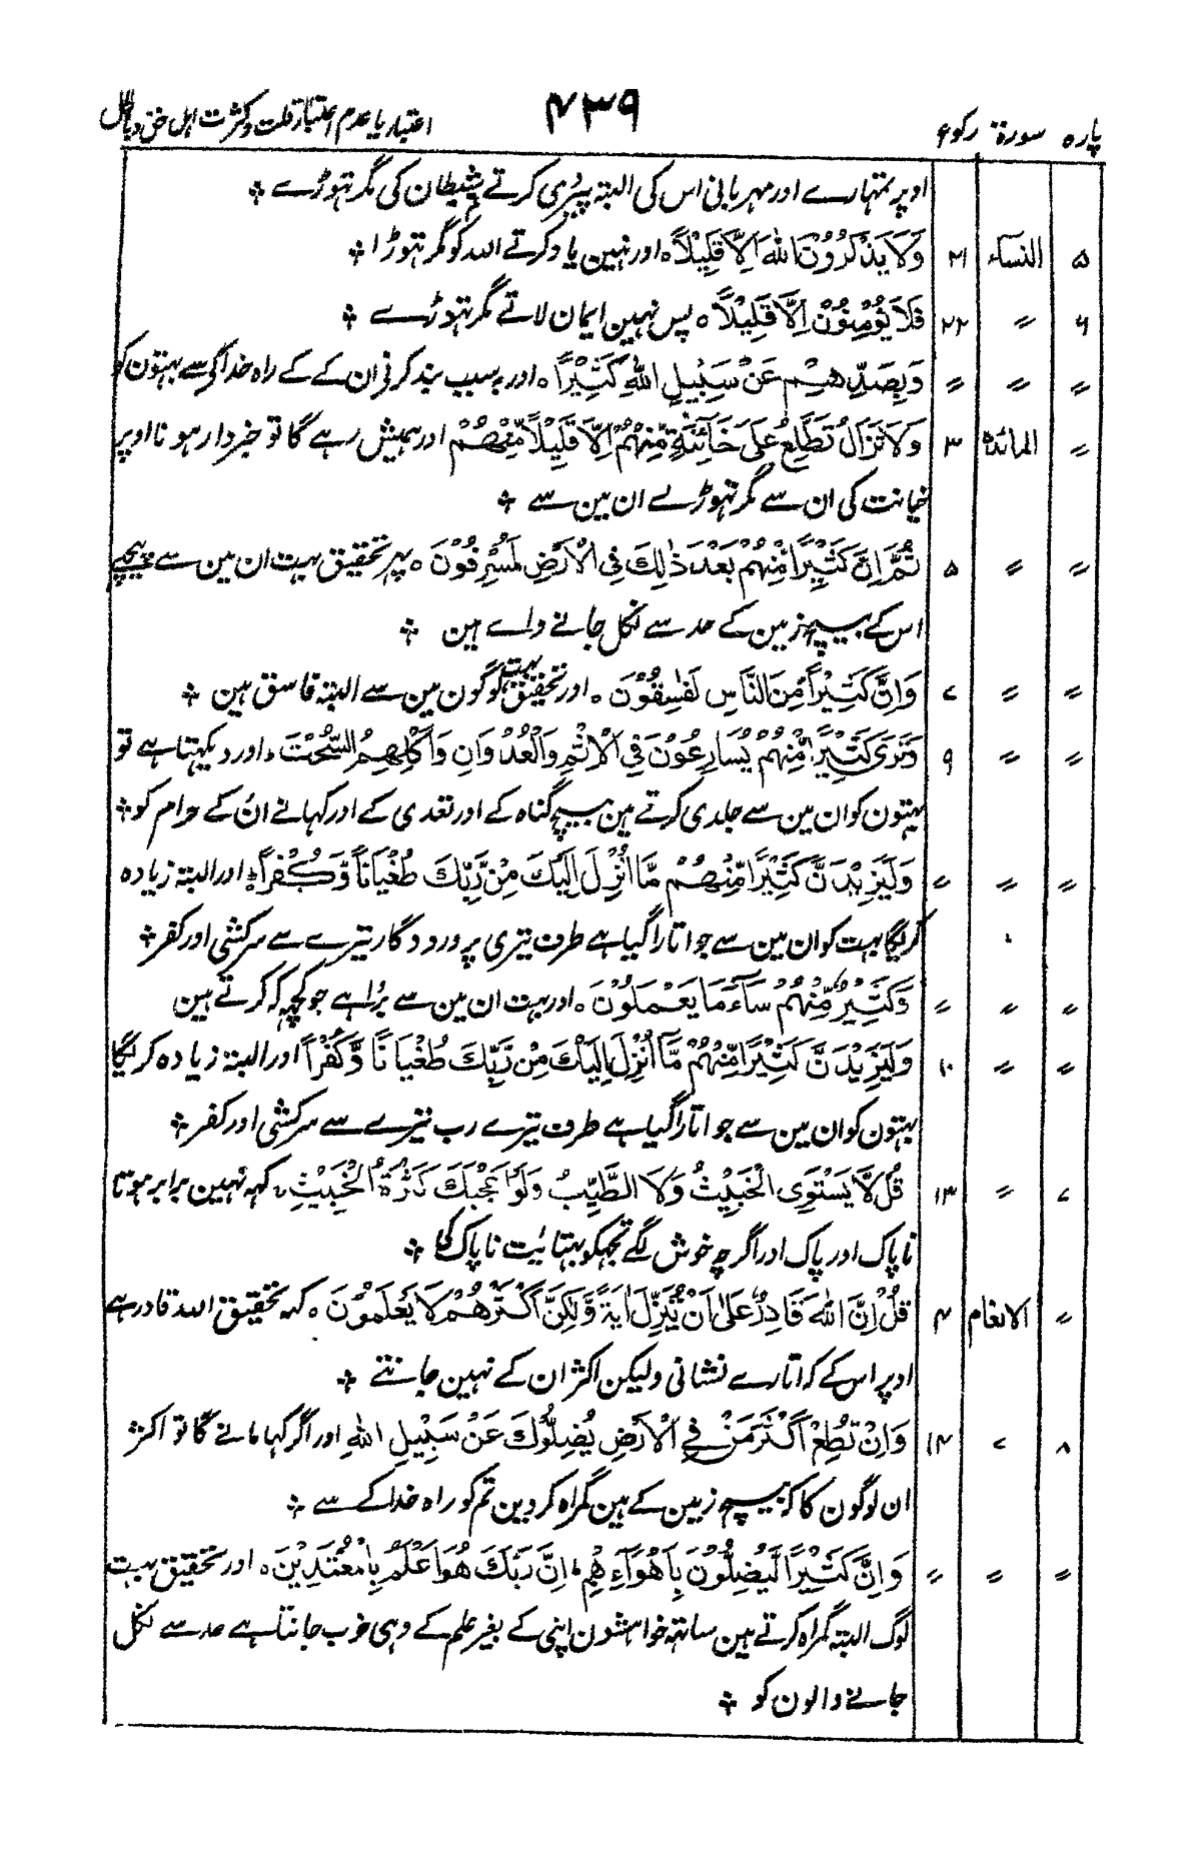 پارہ سورۃ رکوع ۴۳۹ اعتبار یا عدم اعتبار قلت و کثرت اہل حق و باطل
اوپر تمہارے اور مہربانی اس کی البتہ پیرُی کرتے شیطان کی مگر تہوڑے ۞
۵ النساء ۲۱ وَلَا یَذْکُرُوْنَ اللہَ اِلَّا قَلِیْلًا ہ اور نہین یاد کرتے اللہ کو مگر تہوڑا ۞
۶ // ۲۲ فَلَا یُؤْمِنُوْنَ اِلَّا قَلِیْلًا ہ پس نہین ایمان لاتے مگر تہوڑے ۞
// // // وَبِصَدِّهِمْ عَنْ سَبِیْلِ اللہِ کَثِیْرًا ہ اور بہ سبب بند کرنی ان کے کے راہ خدا کی سے بہتون کو
// المائدۃ ۳ وَلَا تَزَالُ تَطَّلِعُ عَلٰی خَآئِنَةٍ مِّنْهُمْ اِلَّا قَلِیْلًا مِّنْهُمْ اور ہمیش رہے گا تو خبردار ہونا اوپر
خیانت کی ان سے مگر تہوڑے ان مین سے ۞
// // ۵ ثُمَّ اِنَّ کَثِیْرًا مِّنْهُمْ بَعْدَ ذٰلِكَ فِی الْاَرْضِ لَمُسْرِفُوْنَ ہ پہر تحقیق بہت ان مین سے پیچہے
اس کے بیچ زمین کے حد سے نکل جانے والے ہین ۞
// // ۷ وَاِنَّ کَثِیْرًا مِّنَ النَّاسِ لَفٰسِقُوْنَ ہ اور تحقیق بہت لوگون مین سے البتہ فاسق ہین ۞
// // ۹ وَتَرٰی کَثِیْرًا مِّنْهُمْ یُسَارِعُوْنَ فِی الْاِثْمِ وَالْعُدْوَانِ وَاَکْلِهِمُ السُّحْتَ ہ اور دیکہتا ہے تو
بہتون کو ان مین سے جلدی کرتے ہین بیچ گناہ کے اور تعدی کے اور کہانے انُ کے حرام کو ۞
// // // وَلَیَزِیْدَنَّ کَثِیْرًا مِّنْهُمْ مَّا اُنْزِلَ اِلَیْكَ مِنْ رَّبِّكَ طُغْیَانًا وَّکُفْرًا ہ اور البتہ زیادہ
کریگا بہت کو ان مین سے جو اتارا گیا ہے طرف تیری پروردگار تیرے سے سرکشی اور کفر ۞
// // // وَکَثِیْرٌ مِّنْهُمْ سَآءَ مَا یَعْمَلُوْنَ ہ اور بہت ان مین سے بُرا ہے جو کچہہ کہ کرتے ہین
// // ۱۰ وَلَیَزِیْدَنَّ کَثِیْرًا مِّنْهُمْ مَّآ اُنْزِلَ اِلَیْكَ مِنْ رَّبِّكَ طُغْیَانًا وَّکُفْرًا اور البتہ زیادہ کریگا
بہتون کو ان مین سے جو اتارا گیا ہے طرف تیرے رب تیرے سے سرکشی اور کفر ۞
۷ // ۱۳ قُلْ لَّا یَسْتَوِی الْخَبِیْثُ وَلَا الطَّیِّبُ وَلَوْ اَعْجَبَكَ کَثْرَةُ الْخَبِیْثِ ہ کہہ نہین برابر ہوتا
ناپاک اور پاک اور اگرچہ خوش لگے تجہکو بہتایٔت ناپاک کا ۞
// الانعام ۴ قُلْ اِنَّ اللہَ قَادِرٌ عَلٰی اَنْ یُّنَزِّلَ اٰیَةً وَّلٰکِنَّ اَکْثَرَهُمْ لَا یَعْلَمُوْنَ ہ کہہ تحقیق اللہ قادر ہے
اوپر اس کے کہ اتارے نشانی ولیکن اکثر ان کے نہین جانتے ۞
۸ // ۱۴ وَاِنْ تُطِعْ اَکْثَرَ مَنْ فِی الْاَرْضِ یُضِلُّوْكَ عَنْ سَبِیْلِ اللہِ اور اگر کہا مانے گا تو اکثر
ان لوگون کا کہ بیچ زمین کے ہین گمراہ کردین تم کو راہ خدا کے سے ۞
// // // وَاِنَّ کَثِیْرًا لَّیُضِلُّوْنَ بِاَهْوَآءِهِمْ اِنَّ رَبَّكَ هُوَ اَعْلَمُ بِالْمُعْتَدِیْنَ ہ اور تحقیق بہت
لوگ البتہ گمراہ کرتے ہین ساتہہ خواہشون اپنی کے بغیر علم کے وہی خوب جانتا ہے حد سے نکل
جانے والون کو ۞